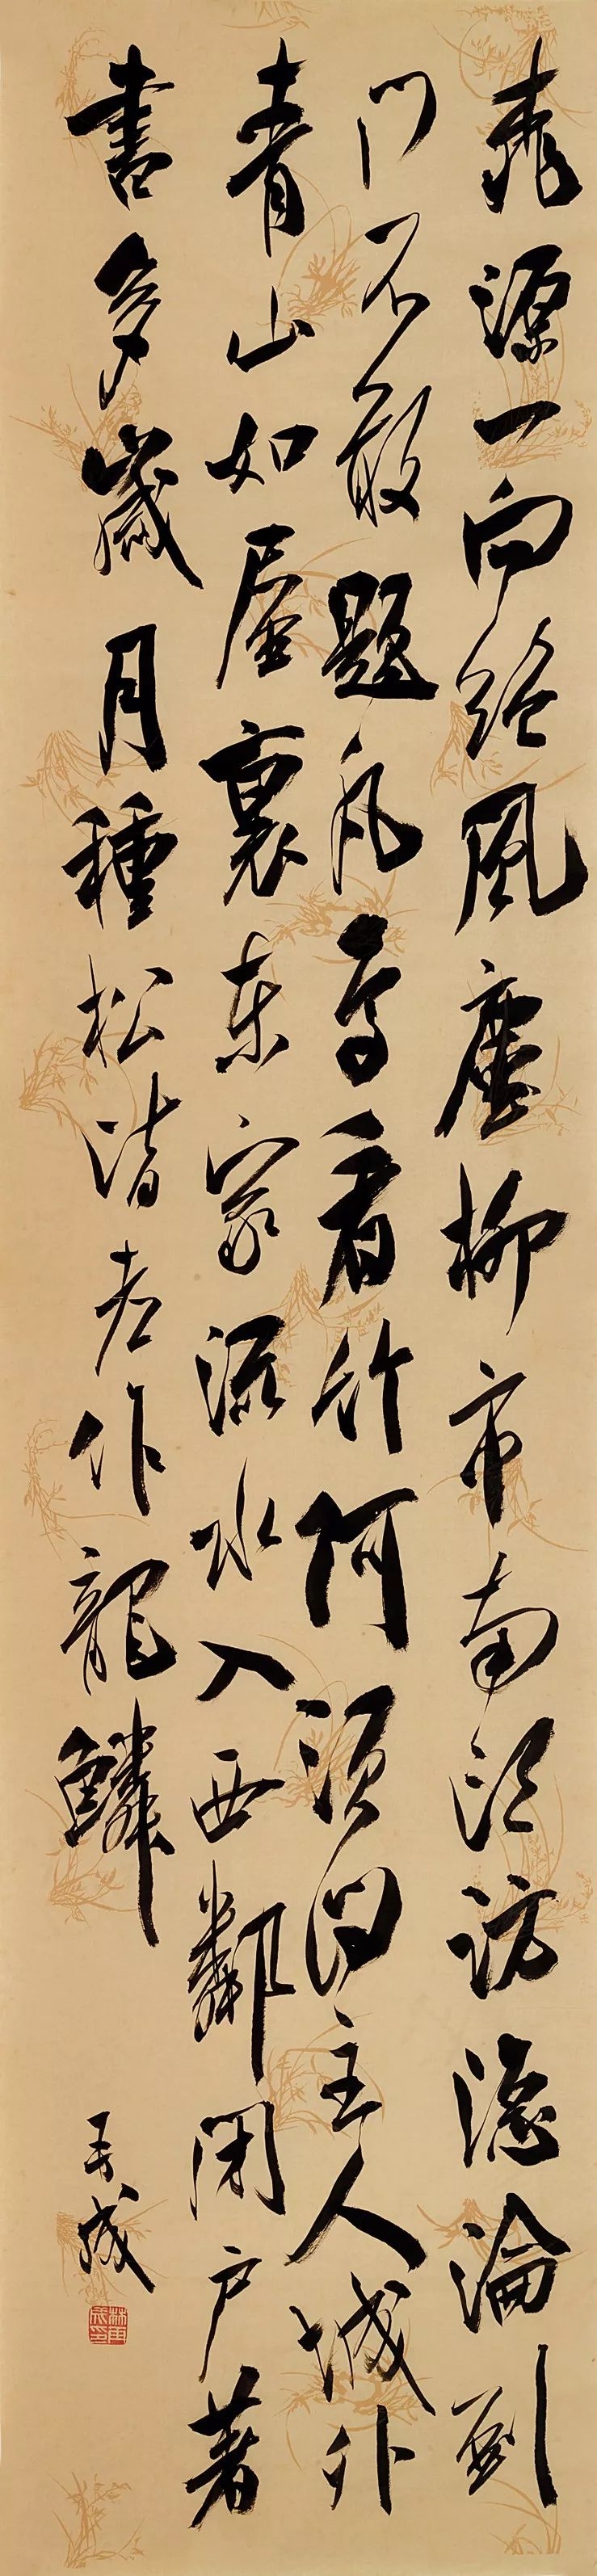 桃源一向絕風塵柳市南頭訪隱淪到
門不敢題凡鳥看竹何須問主人城外
青山如屋裏東家流水入西鄰閉户著
書多歲月種松皆老作龍鱗